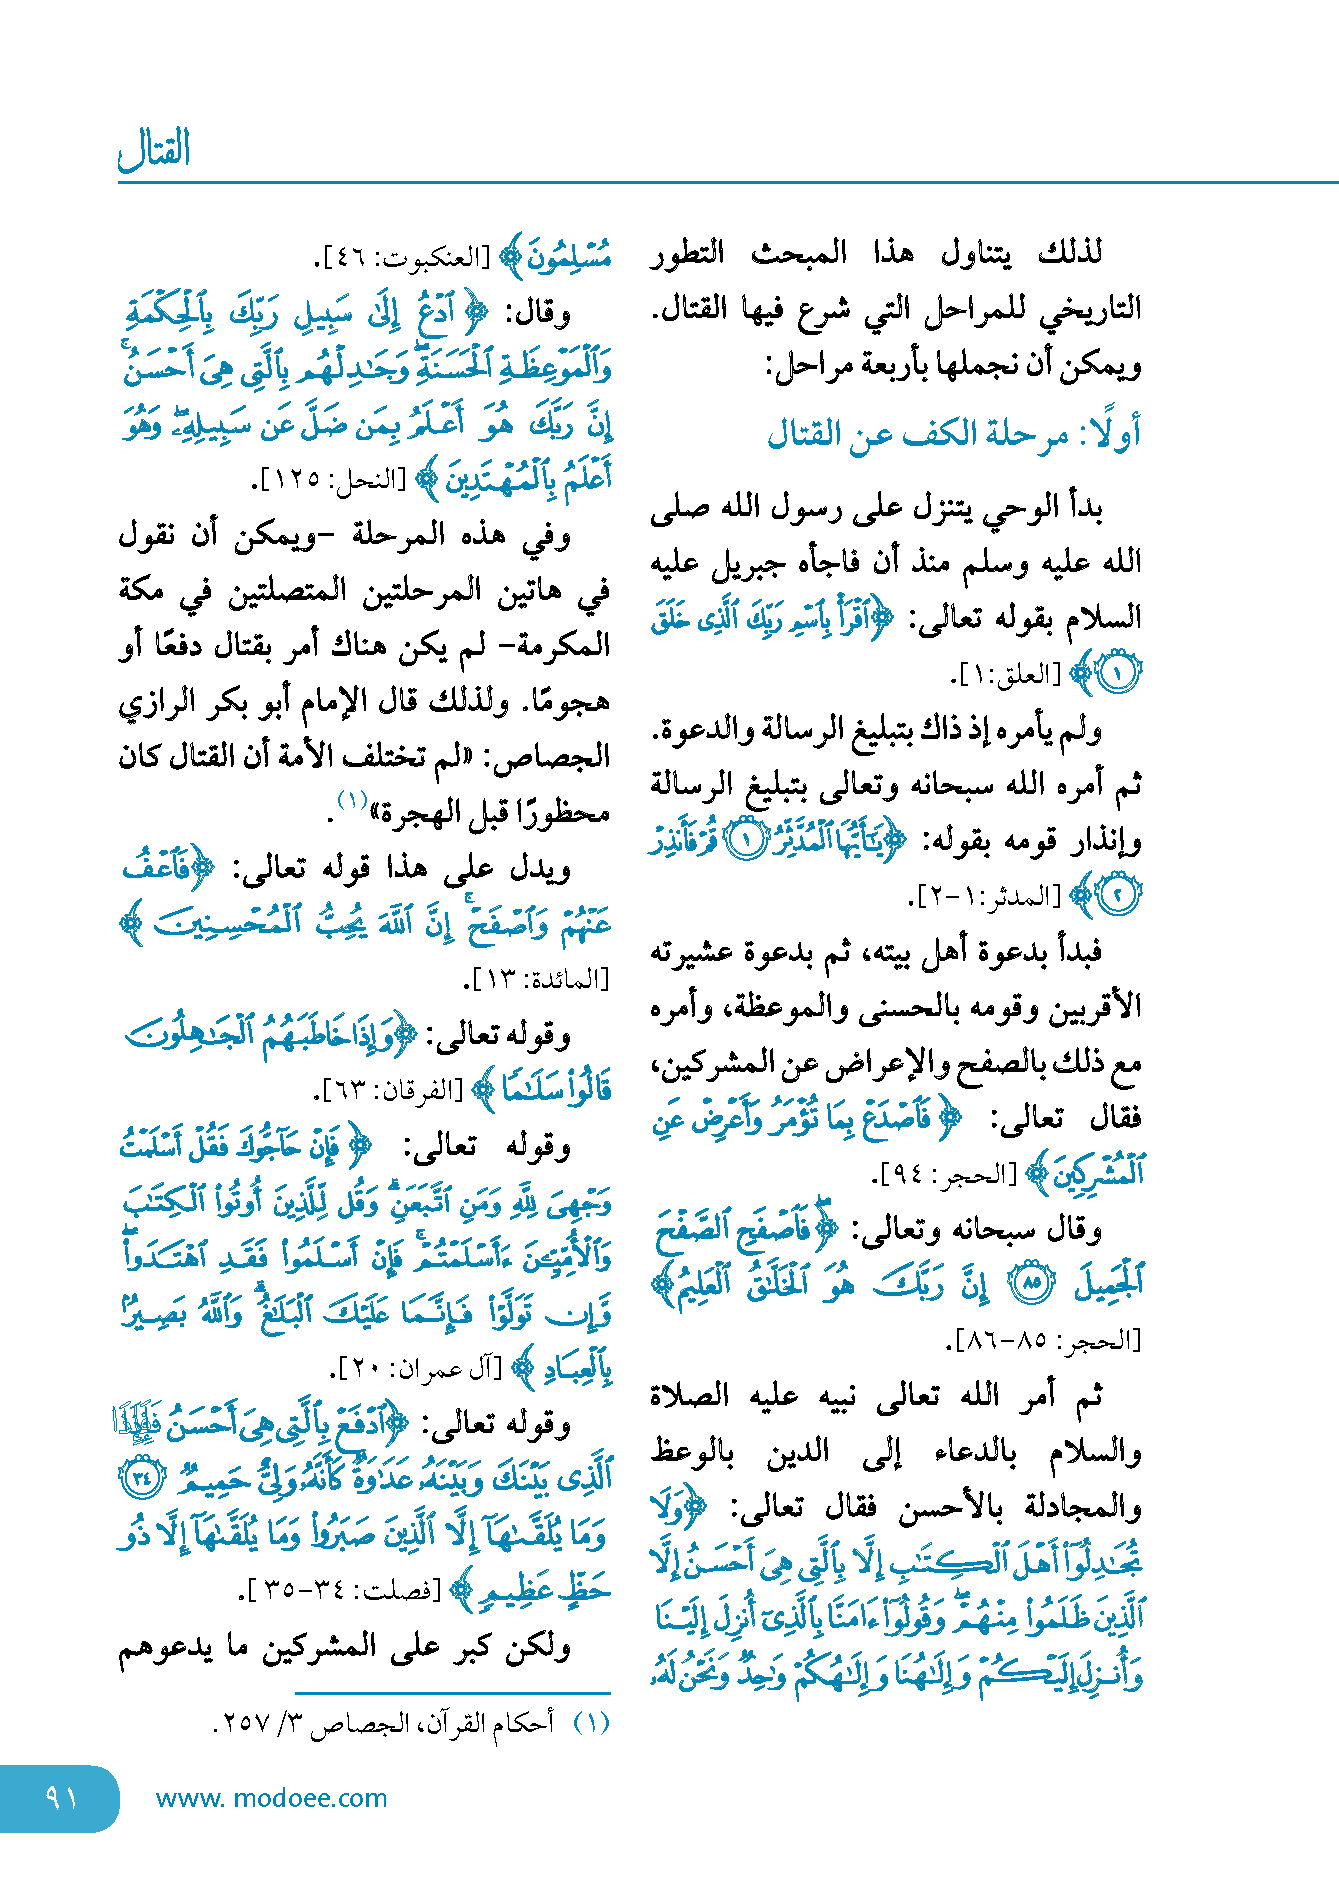 القتال
لذلك يتناول هذا المبحث التطور
التاريخي للمراحل التي شرع فيها القتال.
ويمكن أن نجملها بأربعة مراحل:
أولًا: مرحلة الكف عن القتال
بدأ الوحي يتنزل على رسول الله صلى
الله عليه وسلم منذ أن فاجأه جبريل عليه
السلام بقوله تعالى: ﴿ٱقْرَأْ بِٱسْمِ رَبِّكَ ٱلَّذِى خَلَقَ
١﴾ [العلق:١].
ولم يأمره إذ ذاك بتبليغ الرسالة والدعوة.
ثم أمره الله سبحانه وتعالى بتبليغ الرسالة
وإنذار قومه بقوله: ﴿يَٰٓأَيُّهَا ٱلْمُدَّثِّرُ ١ قُمْ فَأَنذِرْ
٢﴾ [المدثر:١-٢].
فبدأ بدعوة أهل بيته، ثم بدعوة عشيرته
الأقربين وقومه بالحسنى والموعظة، وأمره
مع ذلك بالصفح والإعراض عن المشركين،
فقال تعالى: ﴿فَٱصْدَعْ بِمَا تُؤْمَرُ وَأَعْرِضْ عَنِ
ٱلْمُشْرِكِينَ﴾ [الحجر: ٩٤].
وقال سبحانه وتعالى: ﴿فَٱصْفَحِ ٱلصَّفْحَ
ٱلْجَمِيلَ ٨٥ إِنَّ رَبَّكَ هُوَ ٱلْخَلَّٰقُ ٱلْعَلِيمُ﴾
[الحجر: ٨٥-٨٦].
ثم أمر الله تعالى نبيه عليه الصلاة
والسلام بالدعاء إلى الدين بالوعظ
والمجادلة بالأحسن فقال تعالى: ﴿وَلَا
تُجَٰدِلُوٓا۟ أَهْلَ ٱلْكِتَٰبِ إِلَّا بِٱلَّتِى هِىَ أَحْسَنُ إِلَّا
ٱلَّذِينَ ظَلَمُوا۟ مِنْهُمْ ۖ وَقُولُوٓا۟ ءَامَنَّا بِٱلَّذِىٓ أُنزِلَ إِلَيْنَا
وَأُنزِلَ إِلَيْكُمْ وَإِلَٰهُنَا وَإِلَٰهُكُمْ وَٰحِدٌ وَنَحْنُ لَهُۥ
مُسْلِمُونَ﴾ [العنكبوت: ٤٦].
وقال: ﴿ٱدْعُ إِلَىٰ سَبِيلِ رَبِّكَ بِٱلْحِكْمَةِ
وَٱلْمَوْعِظَةِ ٱلْحَسَنَةِ ۖ وَجَٰدِلْهُم بِٱلَّتِى هِىَ أَحْسَنُ ۚ
إِنَّ رَبَّكَ هُوَ أَعْلَمُ بِمَن ضَلَّ عَن سَبِيلِهِۦ ۖ وَهُوَ
أَعْلَمُ بِٱلْمُهْتَدِينَ﴾ [النحل: ١٢٥].
وفي هذه المرحلة -ويمكن أن نقول
في هاتين المرحلتين المتصلتين في مكة
المكرمة- لم يكن هناك أمر بقتال دفعًا أو
هجومًا. ولذلك قال الإمام أبو بكر الرازي
الجصاص: «لم تختلف الأمة أن القتال كان
محظورًا قبل الهجرة»(١).
ويدل على هذا قوله تعالى: ﴿فَٱعْفُ
عَنْهُمْ وَٱصْفَحْ ۚ إِنَّ ٱللَّهَ يُحِبُّ ٱلْمُحْسِنِينَ﴾
[المائدة: ١٣].
وقوله تعالى: ﴿وَإِذَا خَاطَبَهُمُ ٱلْجَٰهِلُونَ
قَالُوا۟ سَلَٰمًا﴾ [الفرقان: ٦٣].
وقوله تعالى: ﴿فَإِنْ حَآجُّوكَ فَقُلْ أَسْلَمْتُ
وَجْهِىَ لِلَّهِ وَمَنِ ٱتَّبَعَنِ ۗ وَقُل لِّلَّذِينَ أُوتُوا۟ ٱلْكِتَٰبَ
وَٱلْأُمِّيِّـۧنَ ءَأَسْلَمْتُمْ ۚ فَإِنْ أَسْلَمُوا۟ فَقَدِ ٱهْتَدَوا۟ ۖ
وَّإِن تَوَلَّوْا۟ فَإِنَّمَا عَلَيْكَ ٱلْبَلَٰغُ ۗ وَٱللَّهُ بَصِيرٌۢ
بِٱلْعِبَادِ﴾ [آل عمران: ٢٠].
وقوله تعالى: ﴿ٱدْفَعْ بِٱلَّتِى هِىَ أَحْسَنُ فَإِذَا
ٱلَّذِى بَيْنَكَ وَبَيْنَهُۥ عَدَٰوَةٌ كَأَنَّهُۥ وَلِىٌّ حَمِيمٌ ٣٤
وَمَا يُلَقَّىٰهَآ إِلَّا ٱلَّذِينَ صَبَرُوا۟ وَمَا يُلَقَّىٰهَآ إِلَّا ذُو
حَظٍّ عَظِيمٍ﴾ [فصلت: ٣٤-٣٥].
ولكن كبر على المشركين ما يدعوهم
(١) أحكام القرآن، الجصاص ٣/ ٢٥٧.
www. modoee.com
٩١